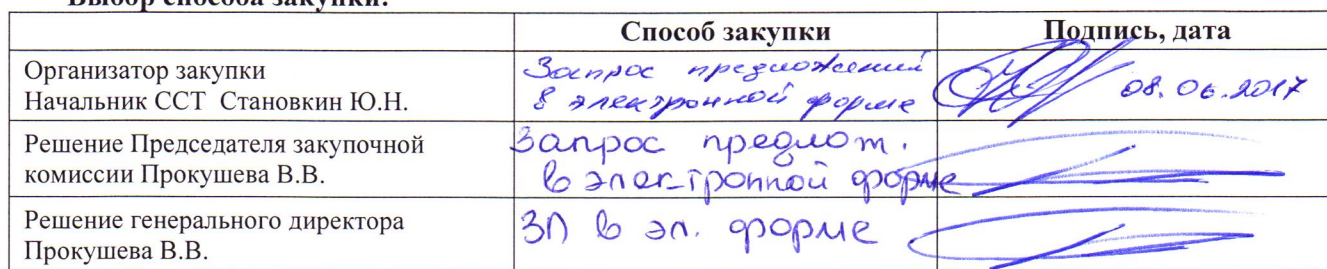 Выбор способа закупки:
Способ закупки Подпись, дата
Организатор закупки
Начальник ССТ Становкин Ю.Н.
Запрос предложений
в электронной форме
08.06.2017
Решение Председателя закупочной
комиссии Прокушева В.В.
Запрос предлож.
в электронной форме
Решение генерального директора
Прокушева В.В.
ЗП в эл. форме